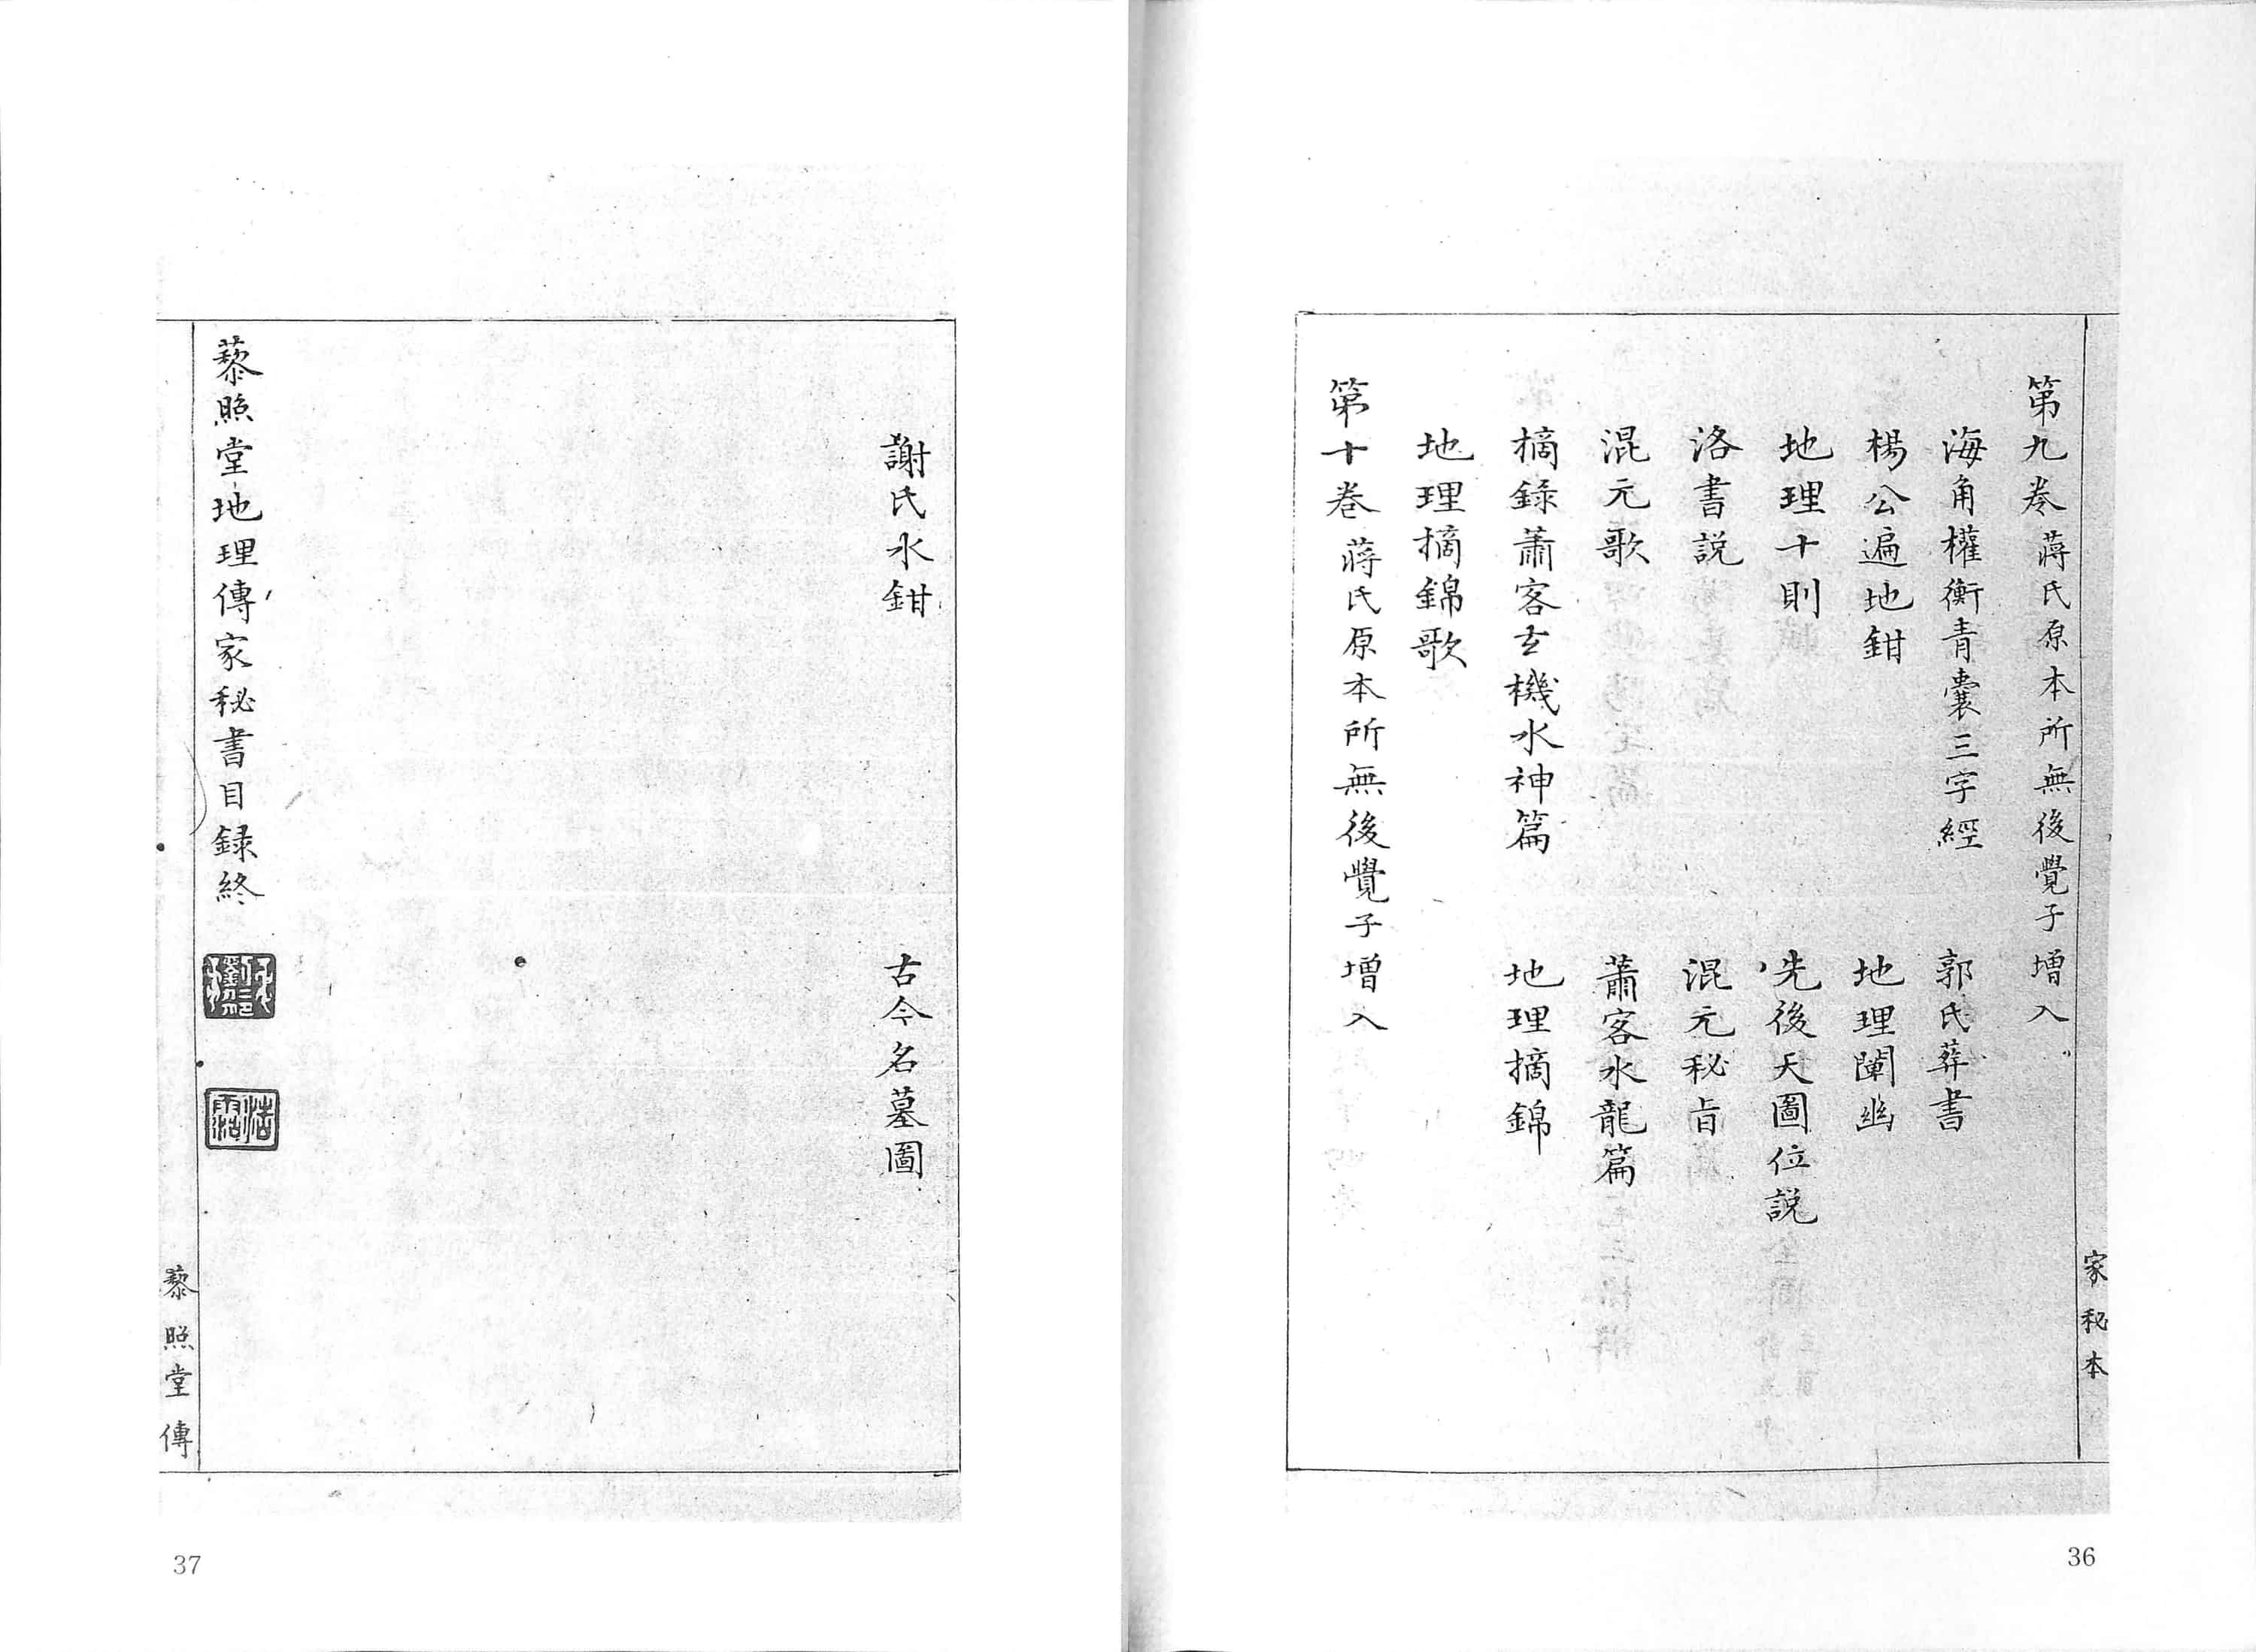 第九卷蔣氏原本所無後覺子增入
海角權衡青囊三字經　郭氏葬書
楊公遍地鉗　地理闡幽
地理十則　先後天圖位説
洛書説　混元秘旨
混元歌　蕭客水龍篇
摘錄蕭客玄機水神篇　地理摘錦
地理摘錦歌
第十卷蔣氏原本所無後覺子增入
家秘本
36
謝氏水鉗　古今名墓圖
藜照堂地理傳家秘書目録終
藜照堂傳
37